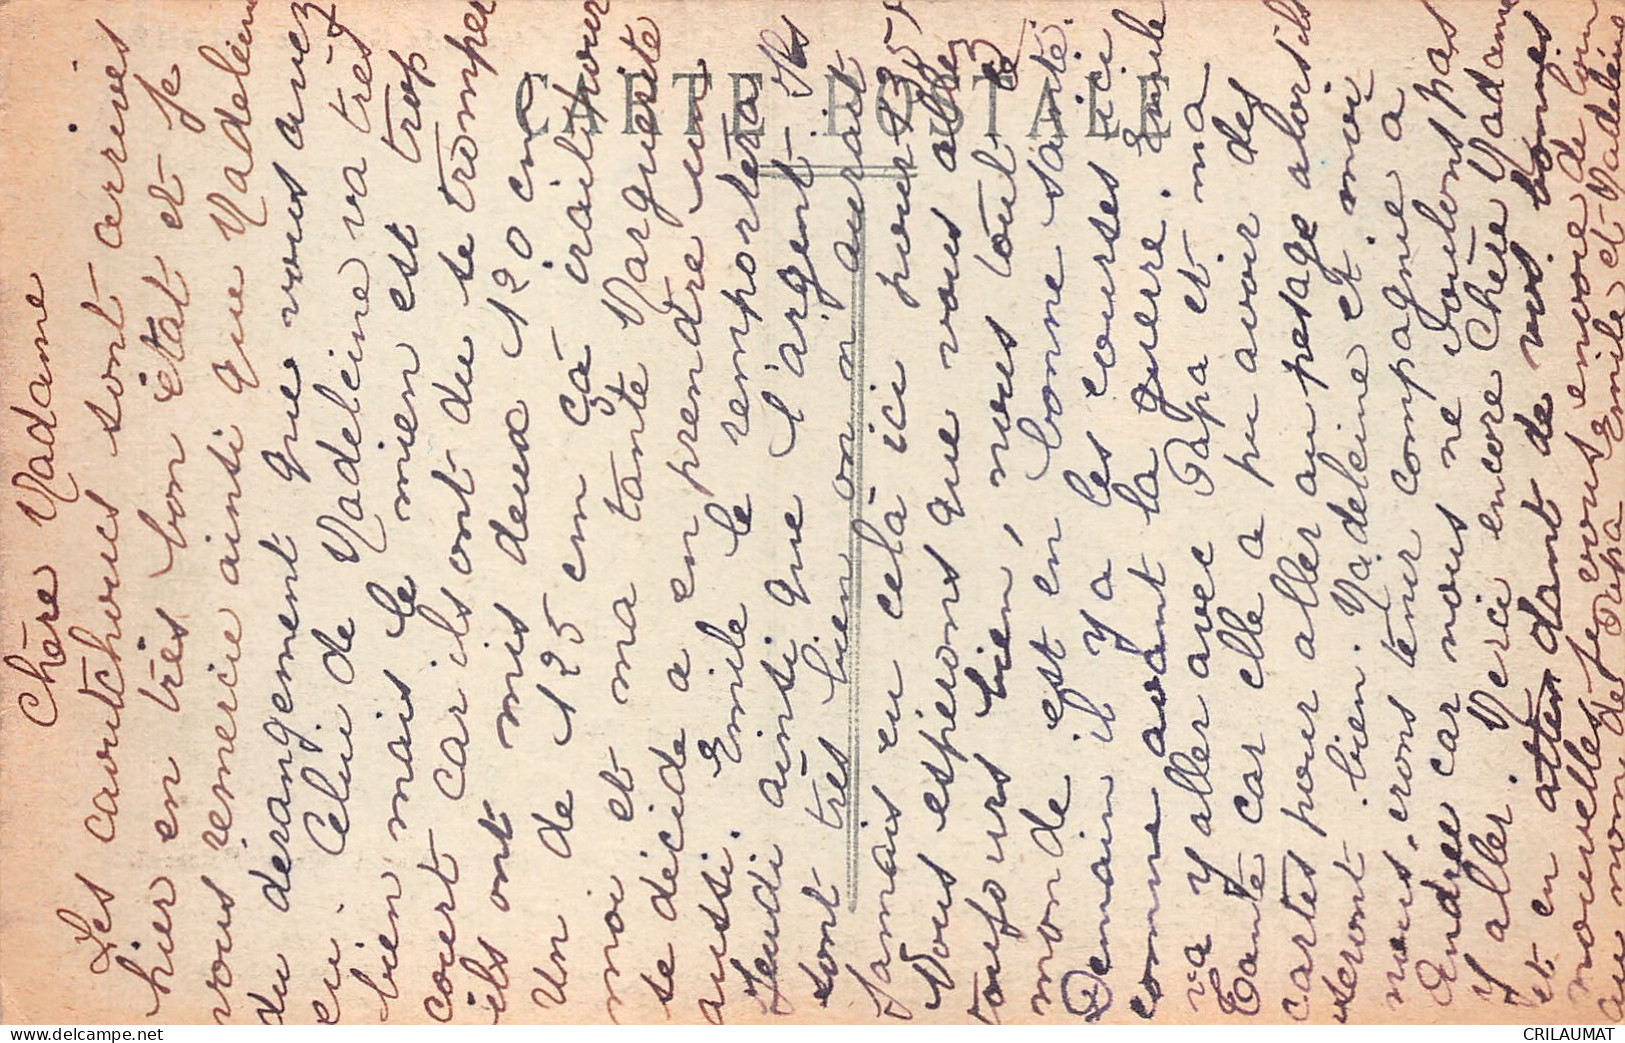 CARTE POSTALE
Chère Madame
Les caoutchoucs sont arrivés
hier en très bon état et je
vous remercie ainsi que Madeleine
du derangement que vous avez
eu. Celui de Madeleine va très
bien mais le mien est trop
court car ils ont du se tromper
ils ont mis deux 120 cm
Un de 125 cm çà irait pour
moi et ma tante Marguerite
se décide a en prendre un
aussi. Emile le remportera
Jeudi ainsi que l'argent. Ils
sont très bien on aurait
Jamais eu cela ici pour 135f
Nous espérons que vous allez
toujours bien, nous tout le
monde est en bonne santé.
Demain il y a les courses ici
comme avant la guerre. Emile
va y aller avec Papa et ma
Tante car elle a pu avoir des
cartes pour aller au pesage alors ils
seront bien. Madeleine et moi
nous irons tenir compagnie à
Andrée car nous ne voulons pas
y aller. Merci encore Chère Madame
et en attendant de vos bonnes
nouvelles je vous envoie de loin
au nom de Papa Emile et Madeleine
CRILAUMAT